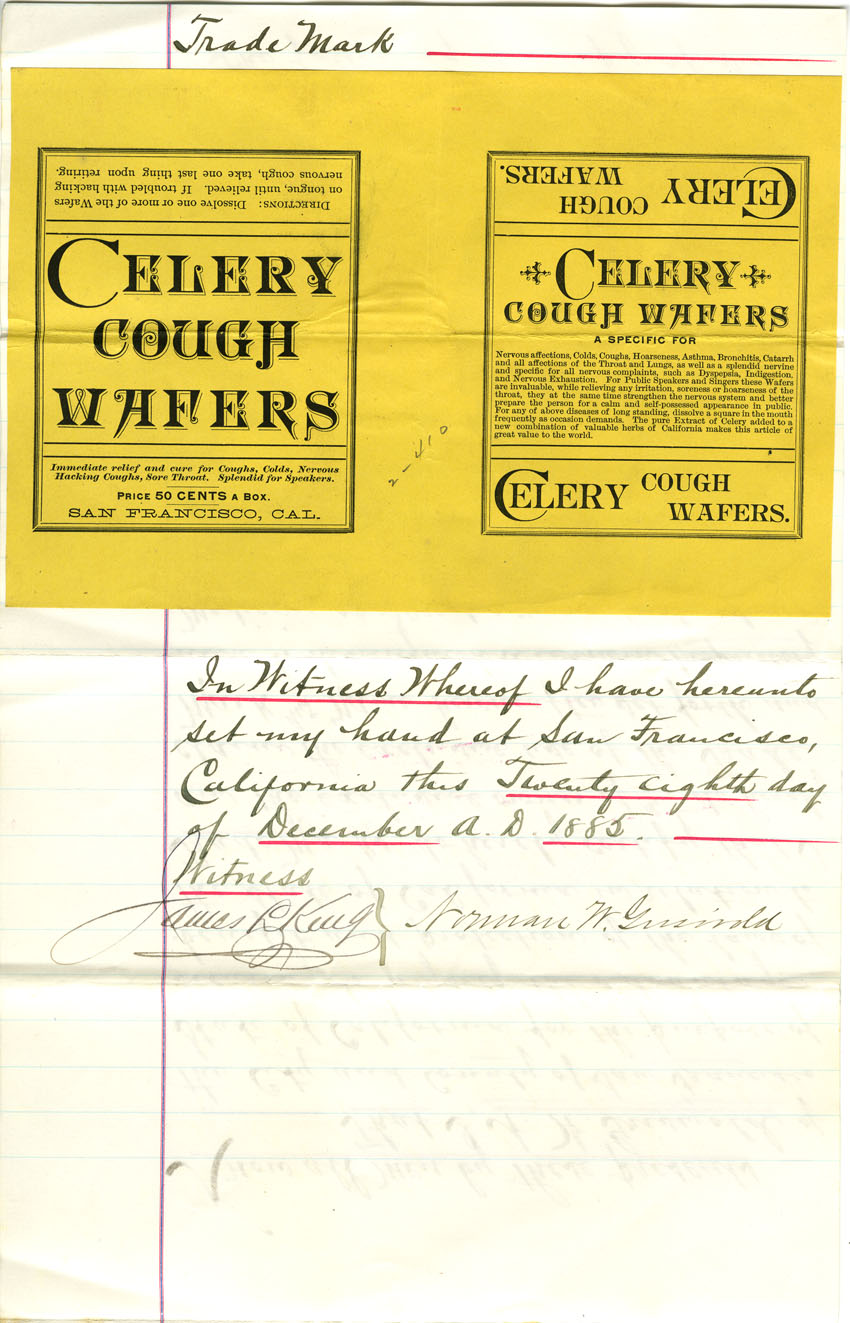 Trade Mark
DIRECTIONS: Dissolve one or more of the Wafers
on tongue, until relieved. If troubled with hacking
nervous cough, take one last thing upon retiring.
CELERY
COUGH
WAFERS
Immediate relief and cure for Coughs, Colds, Nervous
Hacking Coughs, Sore Throat. Splendid for Speakers.
PRICE 50 CENTS A BOX.
SAN FRANCISCO, CAL.
2-410
CELERY COUGH
WAFERS.
CELERY
COUGH WAFERS
A SPECIFIC FOR
Nervous affections, Colds, Coughs, Hoarseness, Asthma, Bronchitis, Catarrh
and all affections of the Throat and Lungs, as well as a splendid nervine
and specific for all nervous complaints, such as Dyspepsia, Indigestion,
and Nervous Exhaustion. For Public Speakers and Singers these Wafers
are invaluable, while relieving any irritation, soreness or hoarseness of the
throat, they at the same time strengthen the nervous system and better
prepare the person for a calm and self-possessed appearance in public.
For any of above diseases of long standing, dissolve a square in the mouth
frequently as occasion demands. The pure Extract of Celery added to a
new combination of valuable herbs of California makes this article of
great value to the world.
CELERY COUGH
WAFERS.
In Witness Whereof I have hereunto
set my hand at San Francisco,
California this Twenty eighth day
of December A. D. 1885.
Witness
James L. King } Norman W. Griswold